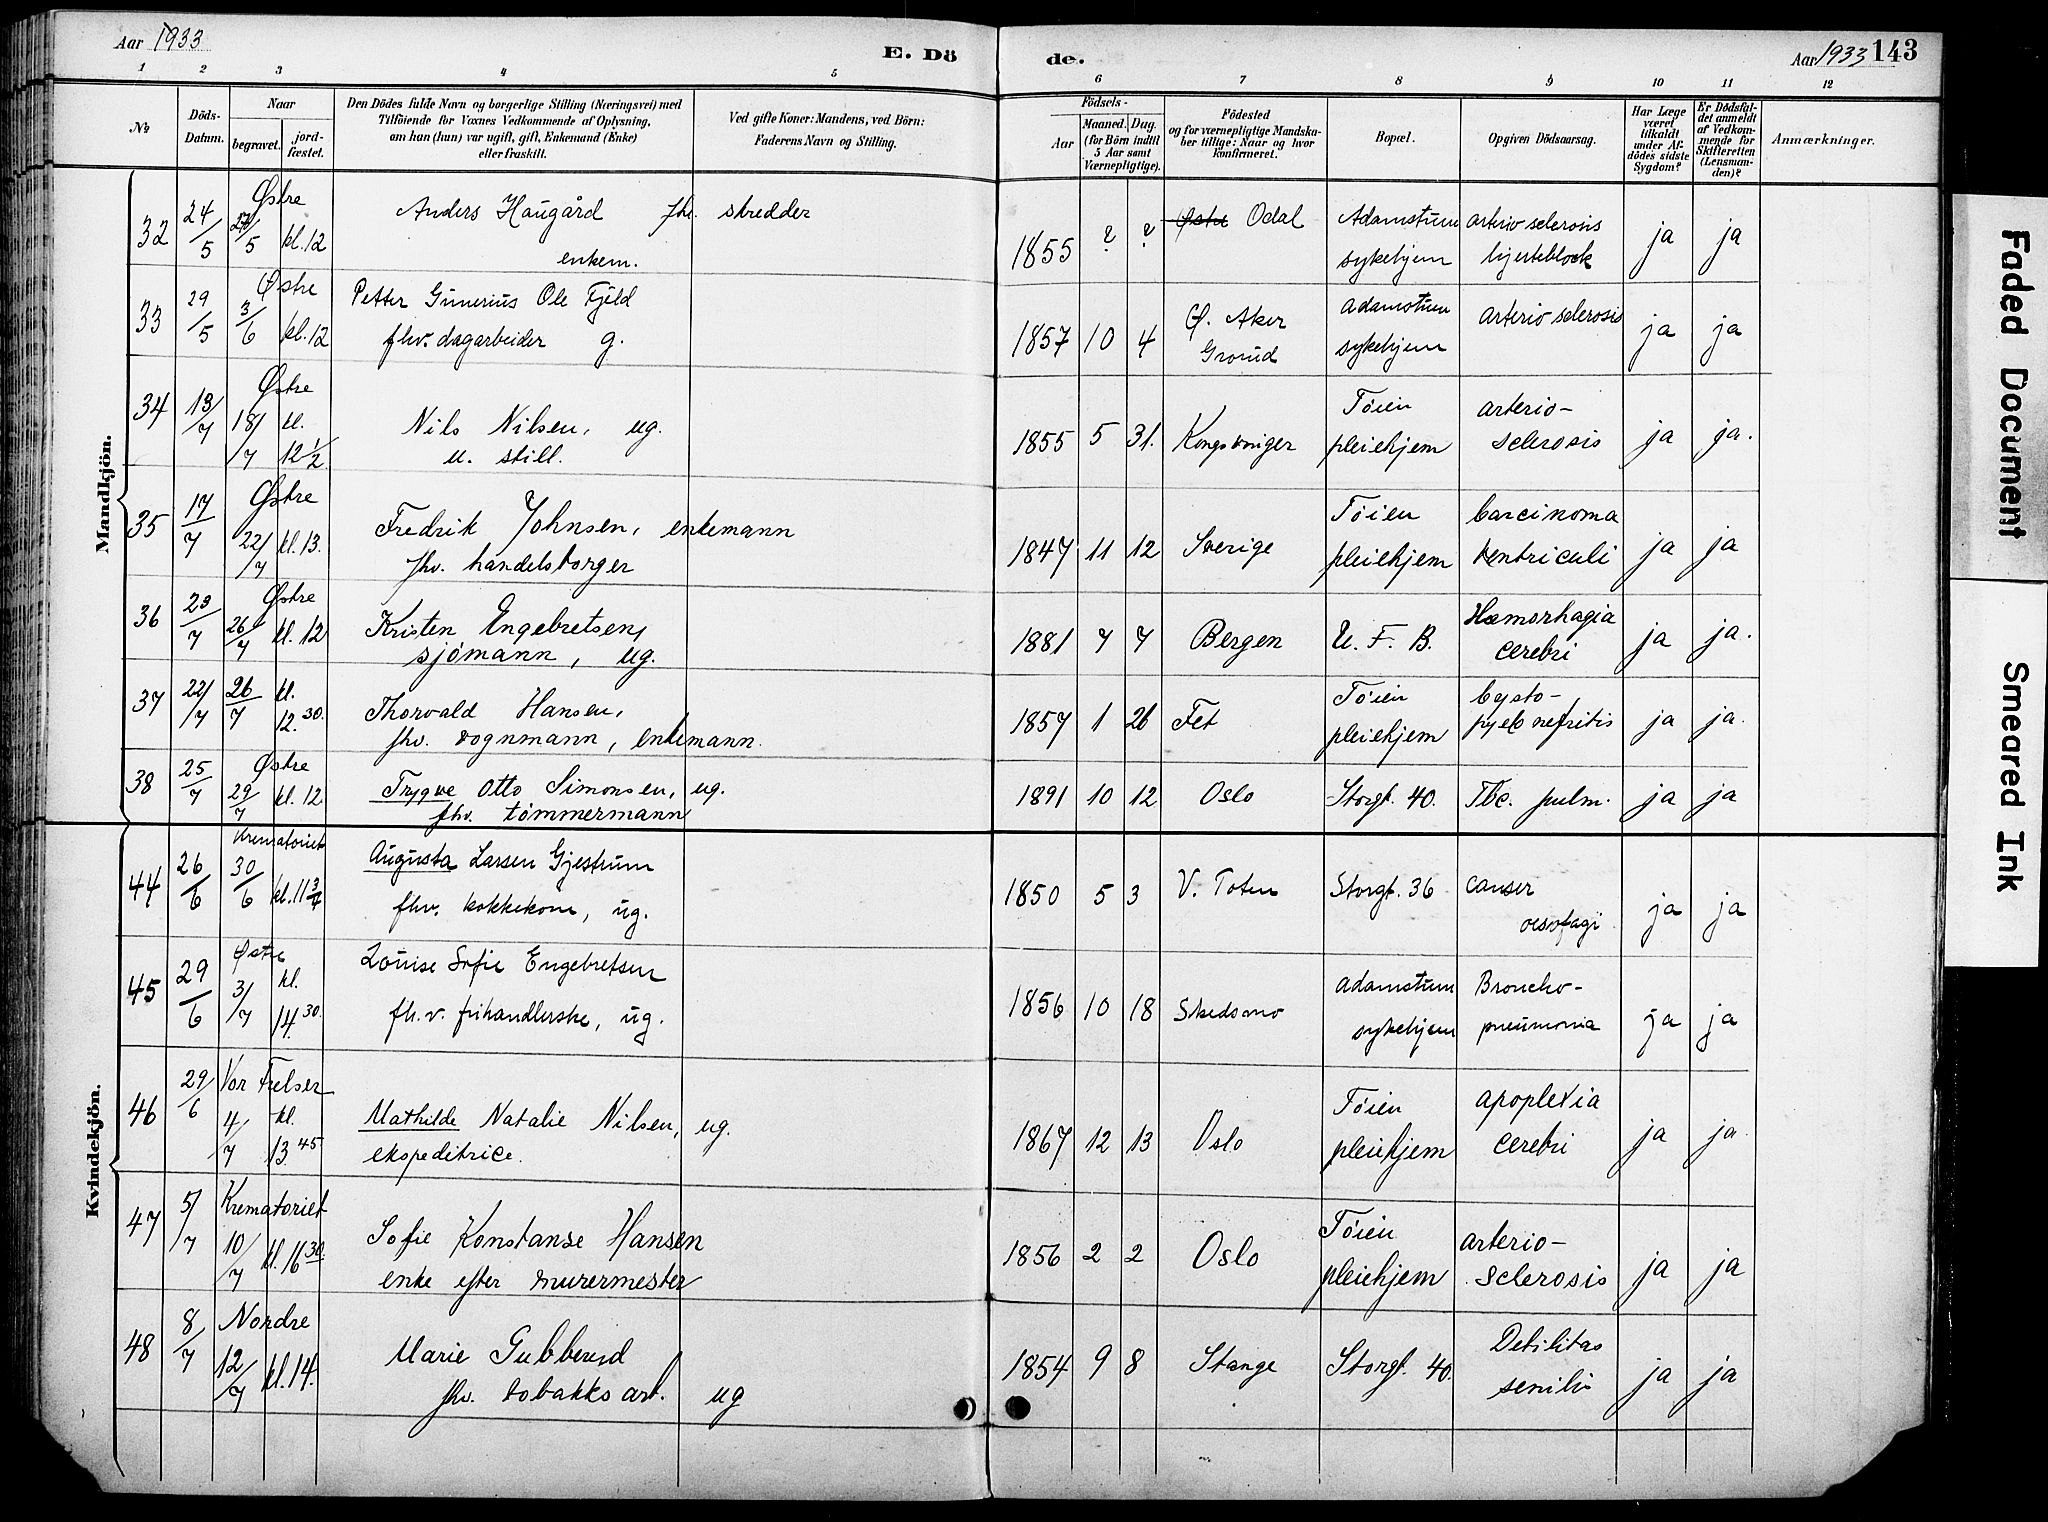 Aar 1933
E. Dö
de.
Aar 1933 143
1 2 3 4 5 6 7 8 9 10 11 12
No
Döds-Datum.
Naar
begravet. jordfæstet.
Den Dödes fulde Navn og borgerlige Stilling (Næringsvei) med
Tilföiende for Voxnes Vedkommende af Oplysning,
om han (hun) var ugift, gift, Enkemand (Enke)
eller fraskilt.
Ved gifte Koner: Mandens, ved Börn:
Faderens Navn og Stilling.
Födsels-
Aar
Maaned. Dag.
(for Börn indtil
5 Aar samt
Værnepligtige).
Födested
og for værnepligtige Mandska-
ber tillige: Naar og hvor
konfirmeret.
Bopæl.
Opgiven Dödsaarsag.
Har Læge
været
tilkaldt
under Af-
dödes sidste
Sygdom?
Er Dödsfal-
det anmeldt
af Vedkom-
mende for
Skifteretten
(Lensman-
den)?
Anmærkninger.
Mandkjön.
32 24/5 Østre 27/5 kl. 12 Anders Haugård fhv. skredder
enkem.
1855 ? ? Østre Odal Adamstuen sykehjem arterio sclerosis hjerteblock ja ja
33 29/5 Østre 3/6 kl. 12 Petter Gunerius Ole Fjeld
fhv. dagarbeider g.
1857 10 4 Ø. Aker Grorud Adamstuen sykehjem arterio sclerosis ja ja
34 13/7 Østre 18/7 kl. 12 1/2 Nils Nilsen, ug.
u. still.
1855 5 31. Kongsvinger Tøien pleiehjem arterio-sclerosis ja ja.
35 17/7 Østre 22/7 kl. 13. Fredrik Johnsen, enkemann
fhv. handelsborger
1847 11 12 Sverige Tøien pleiehjem Carcinoma ventriculi ja ja
36 23/7 Østre 26/7 kl. 12 Kristen Engebretsen,
sjømann, ug.
1881 7 7 Bergen U. F. B. Hæmorhagia cerebri ja ja.
37 22/7 26/7 kl. 12.30. Thorvald Hansen,
fhv. vognmann, enkemann.
1857 1 26 Fet Tøien pleiehjem Cysto-pyelo nefritis ja ja.
38 25/7 Østre 29/7 kl. 12 Trygve Otto Simonsen, ug.
fhv. tømmermann
1891 10 12 Oslo Storgt. 40. Tbc. pulm. ja ja
Kvindekjön.
44 26/6 Krematoriet 30/6 kl. 11 3/4 Augusta Larsen Gjestrum
fhv. kokkekone, ug.
1850 5 3 V. Toten Storgt. 36 canser oesofagi ja ja
45 29/6 Østre 3/7 kl. 14.30. Louise Sofie Engebretsen
fh.v. frihandlerske, ug.
1856 10 18 Skedsmo Adamstuen sykehjem Broncho-pneumonia ja ja
46 29/6 Vor Frelser 4/7 kl. 13.45 Mathilde Natalie Nilsen, ug.
ekspeditrice.
1867 12 13 Oslo Tøien pleiehjem apoplexia cerebri ja ja.
47 5/7 Krematoriet 10/7 kl. 16 30. Sofie Konstanse Hansen
enke efter murermester
1856 2 2 Oslo Tøien pleiehjem arterio-sclerosis ja ja
48 8/7 Nordre 12/7 kl. 14. Marie Gubberud
fhv. tobakks arb. ug
1854 9 8 Stange Storgt. 40. Debilitas senilis ja ja
Faded Document
Smeared Ink